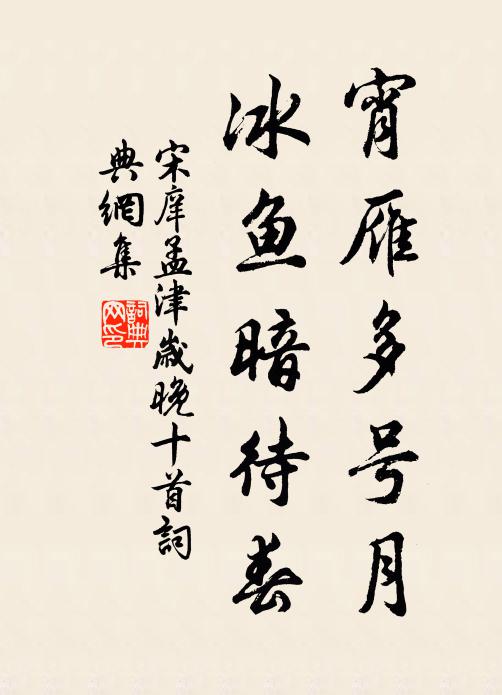 宵雁多号月
冰鱼暗待春
宋庠孟津歳晚十首詞
典網集
詞典
网印